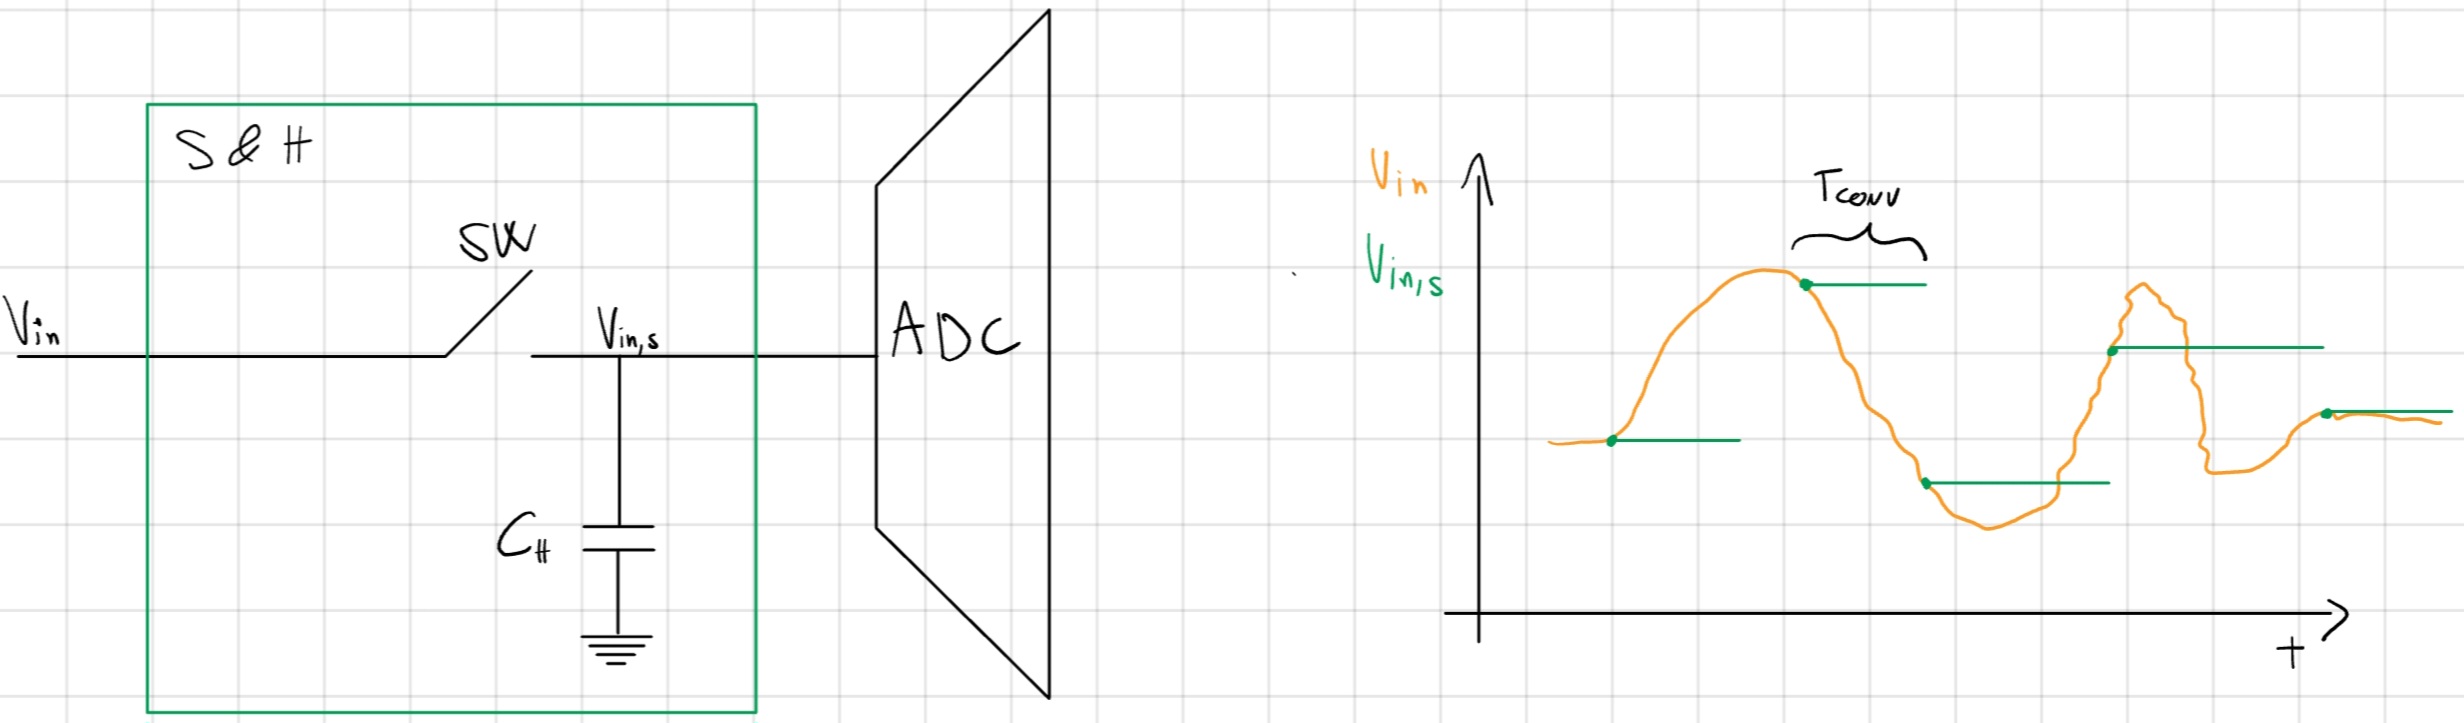 S & H
SW
Vin
Vin,s
ADC
CH
Vin
Vin,s
TCONV
t